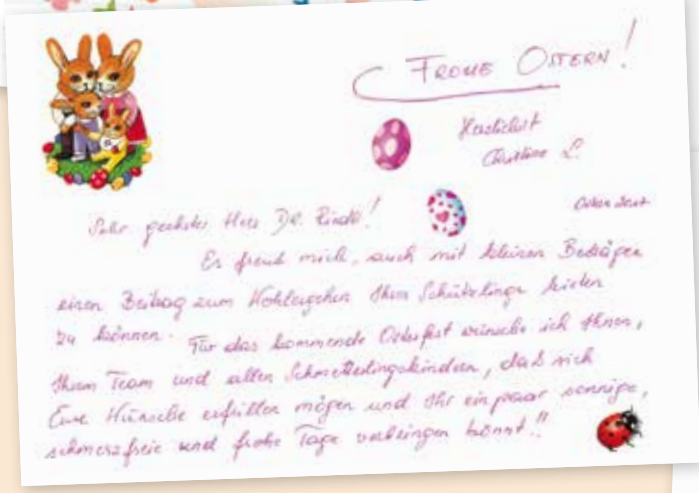 FROHE OSTERN!
Herzlichst
Christine L.
Sehr geehrter Herr Dr.
Es freut mich, auch mit kleinen Beträgen
einen Beitrag zum Wohlergehen Ihrer Schützlinge leisten
zu können. Für das kommende Osterfest wünsche ich Ihnen,
Ihrem Team und allen Schmetterlingskindern, daß sich
Eure Wünsche erfüllen mögen und Ihr ein paar sonnige,
schmerzfreie und frohe Tage verbringen könnt!!